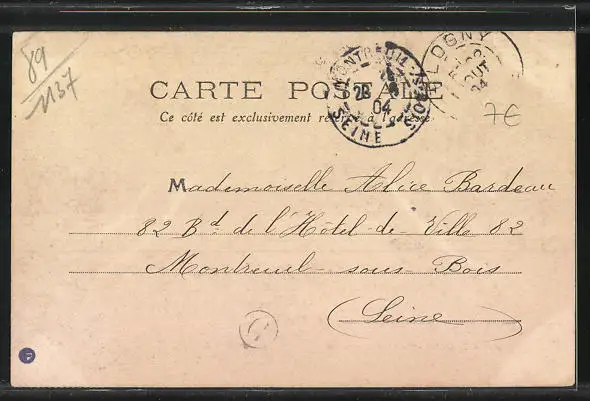 89
1137
MONTREUIL-S-BOIS
28
04
SEINE
LOGNY
AOUT
04
CARTE POSTALE
Ce côté est exclusivement réservé à l'adresse
7€
Mademoiselle Alice Bardeau
82 Bd de l'Hôtel-de-Ville 82
Montreuil-sous-Bois
(Seine)